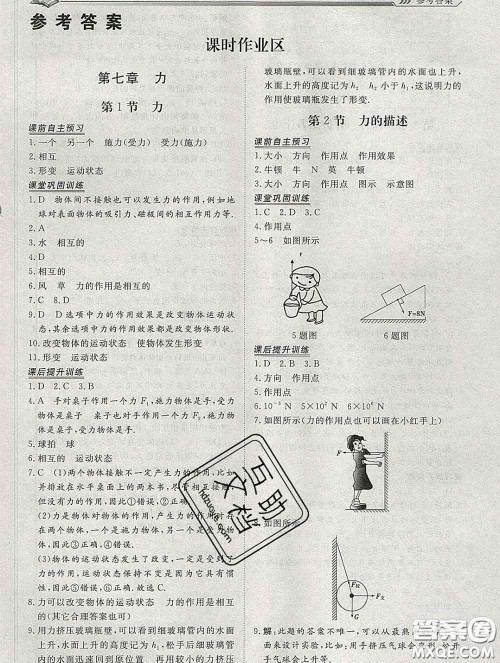 参考答案
参考答案
课时作业区
第七章 力
第1节 力
课前自主预习
1.一个 另一个 施力(受力) 受力(施力)
2.相互
3.形变 运动状态
课堂巩固训练
1.D 物体间不接触也可以发生力的作用,例如地
球对表面物体的吸引力、磁极间的相互作用力等.
2.A
3.水 相互的
4.D
5.相互的
6.风 草 力的作用是相互的
7.C 8.D
9.D D选项中力的作用效果是改变物体运动
状态,其余选项中力的作用效果是改变物体形状.
10.改变物体的运动状态 使物体发生形变
11.形变 运动状态
课后提升训练
1.D 2.D 3.B
4.A 手对桌子施加一个力,施力物体是手,受力
物体是桌子 桌子也对手施加一个力,施力物体
是桌子,受力物体是手.
5.球拍 球
6.相互的 运动状态
7.C (1)两个物体接触不一定产生力的作用,比如
并排放在水平桌面上的两个木块,虽然相互接触
但没有力的作用,因此①错误,②正确.
(2)力是物体对物体的作用,产生力的作用时,存
在两个物体,一个是施力物体,一个是受力物体,
因此③正确,④错误.
(3)物体的运动状态发生了改变,一定受到力的
作用;受力物体的运动状态不一定改变,比如静
止,因此⑥正确,⑤错误.
8.力可以改变物体的运动状态 力的作用是相互
的(其它合理答案也可)
9.用力挤压玻璃瓶壁,可以看到细玻璃管内的水面
上升,松手后细玻璃管内的水面又下降,说明
水面迅速回到原位置 再用较小的力挤压
玻璃瓶壁,可以看到细玻璃管内的水面也上升,
水面上升的高度为h₂ h₂小于h₁,这说明力的
作用使玻璃瓶发生了形变.
第2节 力的描述
课前自主预习
1.大小 方向 作用点 作用效果
2.牛顿 牛 N 英 牛顿
3.大小 方向 作用点 图示 示意图
课堂巩固训练
1.C 2.D 3.C
4.作用点
5~6 如图所示
F
F=8N
5题图 6题图
课后提升训练
1.D 2.A 3.B
4.方向 作用点
5.大小 作用点
6.10⁻³ N 5×10⁴ N 6×10² N
7.如图所示(力的作用点也可以画在小红手上)
F
8.如图所示
F
G
9.解:此题的答案不唯一,可以根据实际生活
设计实验,如:用手挤压气球
互助文档
hdzuoye.com
答案圈
MXQE.COM